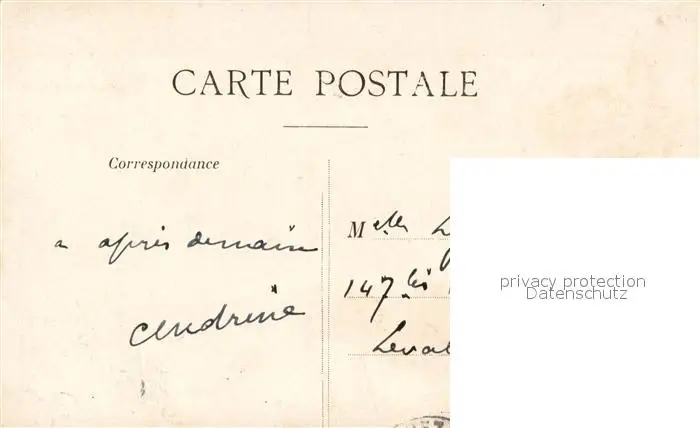 CARTE POSTALE
Correspondance
a après demain
Andrine
Melle L
147 bis
Leval
privacy protection
Datenschutz